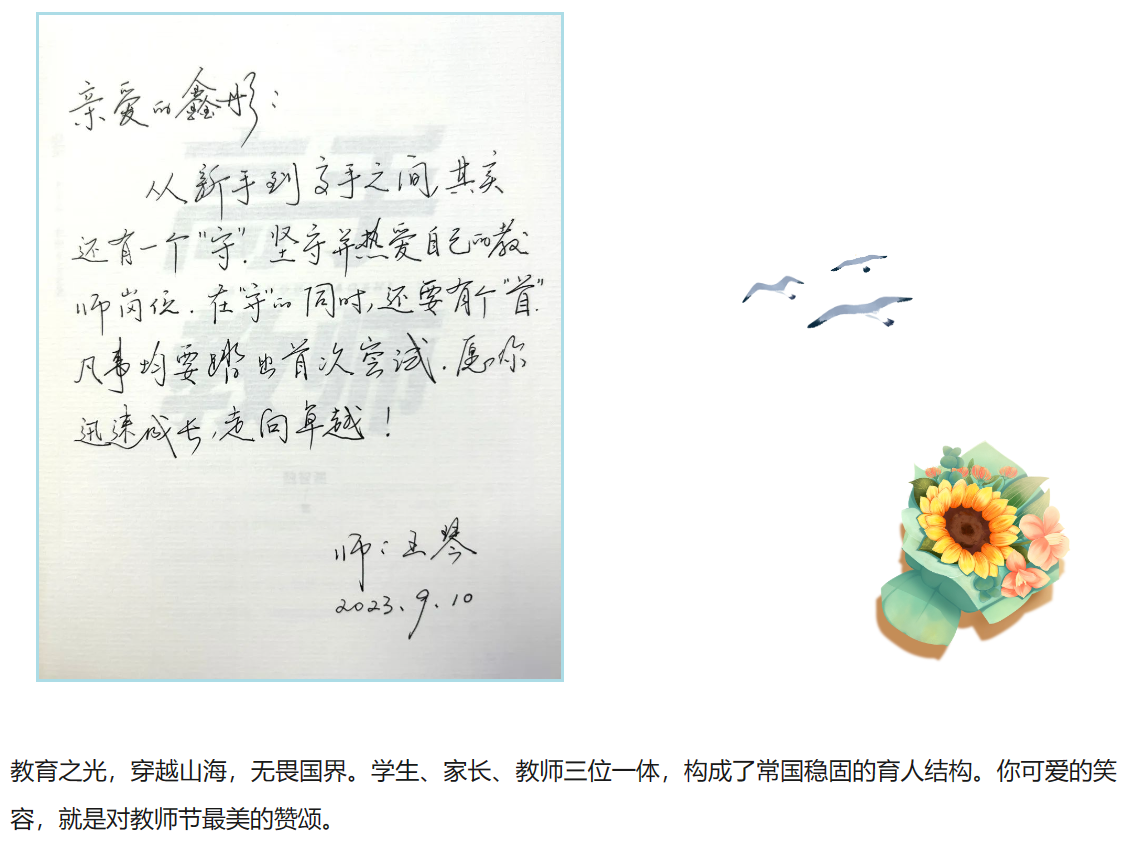 亲爱的鑫彤：
从新手到高手之间，其实
还有一个“守”．坚守并热爱自己的教
师岗位．在“守”的同时，还要有个“首”．
凡事均要踏出首次尝试．愿你
迅速成长，走向卓越！
师：王琴
2023.9.10
高手
教师
教育之光，穿越山海，无畏国界。学生、家长、教师三位一体，构成了常国稳固的育人结构。你可爱的笑
容，就是对教师节最美的赞颂。